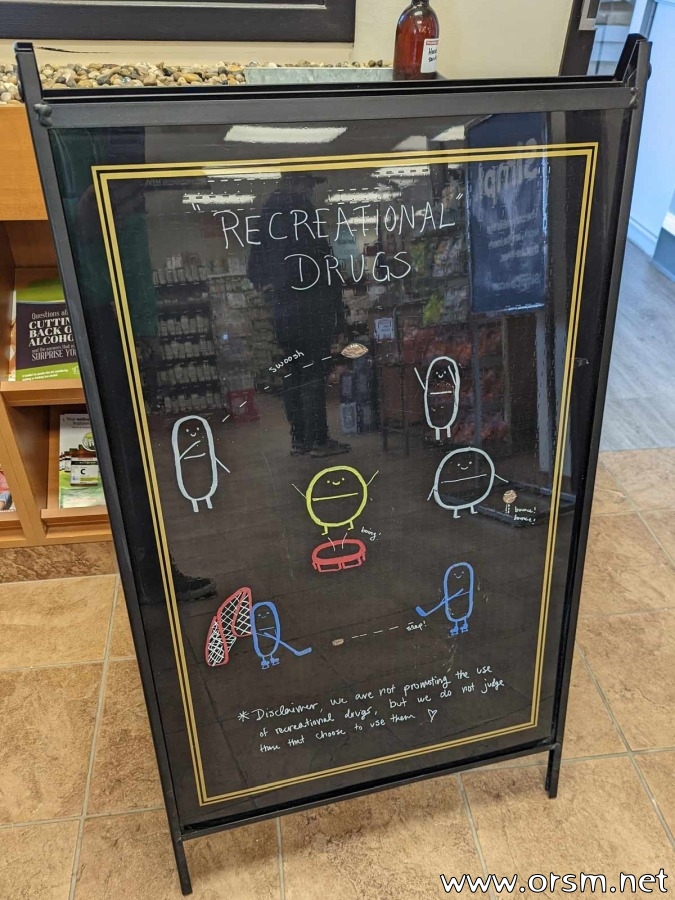 "RECREATIONAL"
DRUGS
swoosh
bounce!
bounce!
boing!
slap!
* Disclaimer, we are not promoting the use
of recreational drugs, but we do not judge
those that choose to use them ♡
Questions about
CUTTING
BACK ON
ALCOHOL
SURPRISE YOU
www.orsm.net